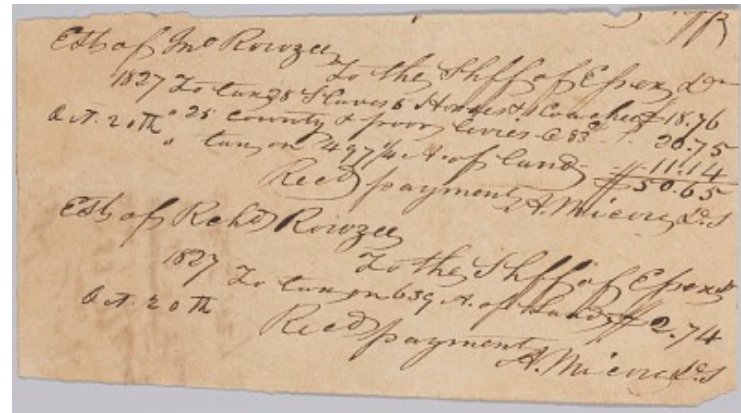 Estt of Jno Rowzee
To the Shff of Essex Dr
1827 To tax 28 Slaves 6 Horses & 1 Coachee $18.76
Oct. 20th " 25 County & poor levies @ 83c 20.75
" tax on 497 1/4 A. of land 11.14
$50.65
Recd payment
A. Micou D.S
Estt of Richd Rowzee
To the Shff of Essex Dr
1827 To tax on 639 A. of Land $2.74
Oct. 20th
Recd payment
A. Micou D.S